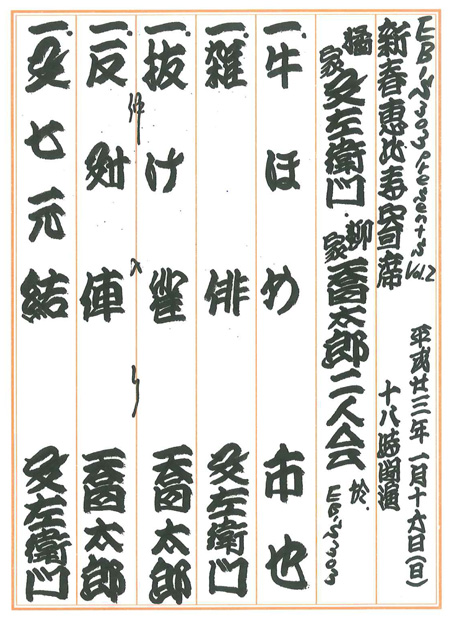 EBiS303 presents Vol.2
平成廿三年 一月十六日(日)
新春恵比寿寄席
十八時開演
橘家文左衛門・柳家喬太郎二人会 於.EBiS303
一.牛ほめ 市也
一.雑俳 文左衛門
一.抜け雀 喬太郎
仲入り
一.反対俥 喬太郎
一.文七元結 文左衛門